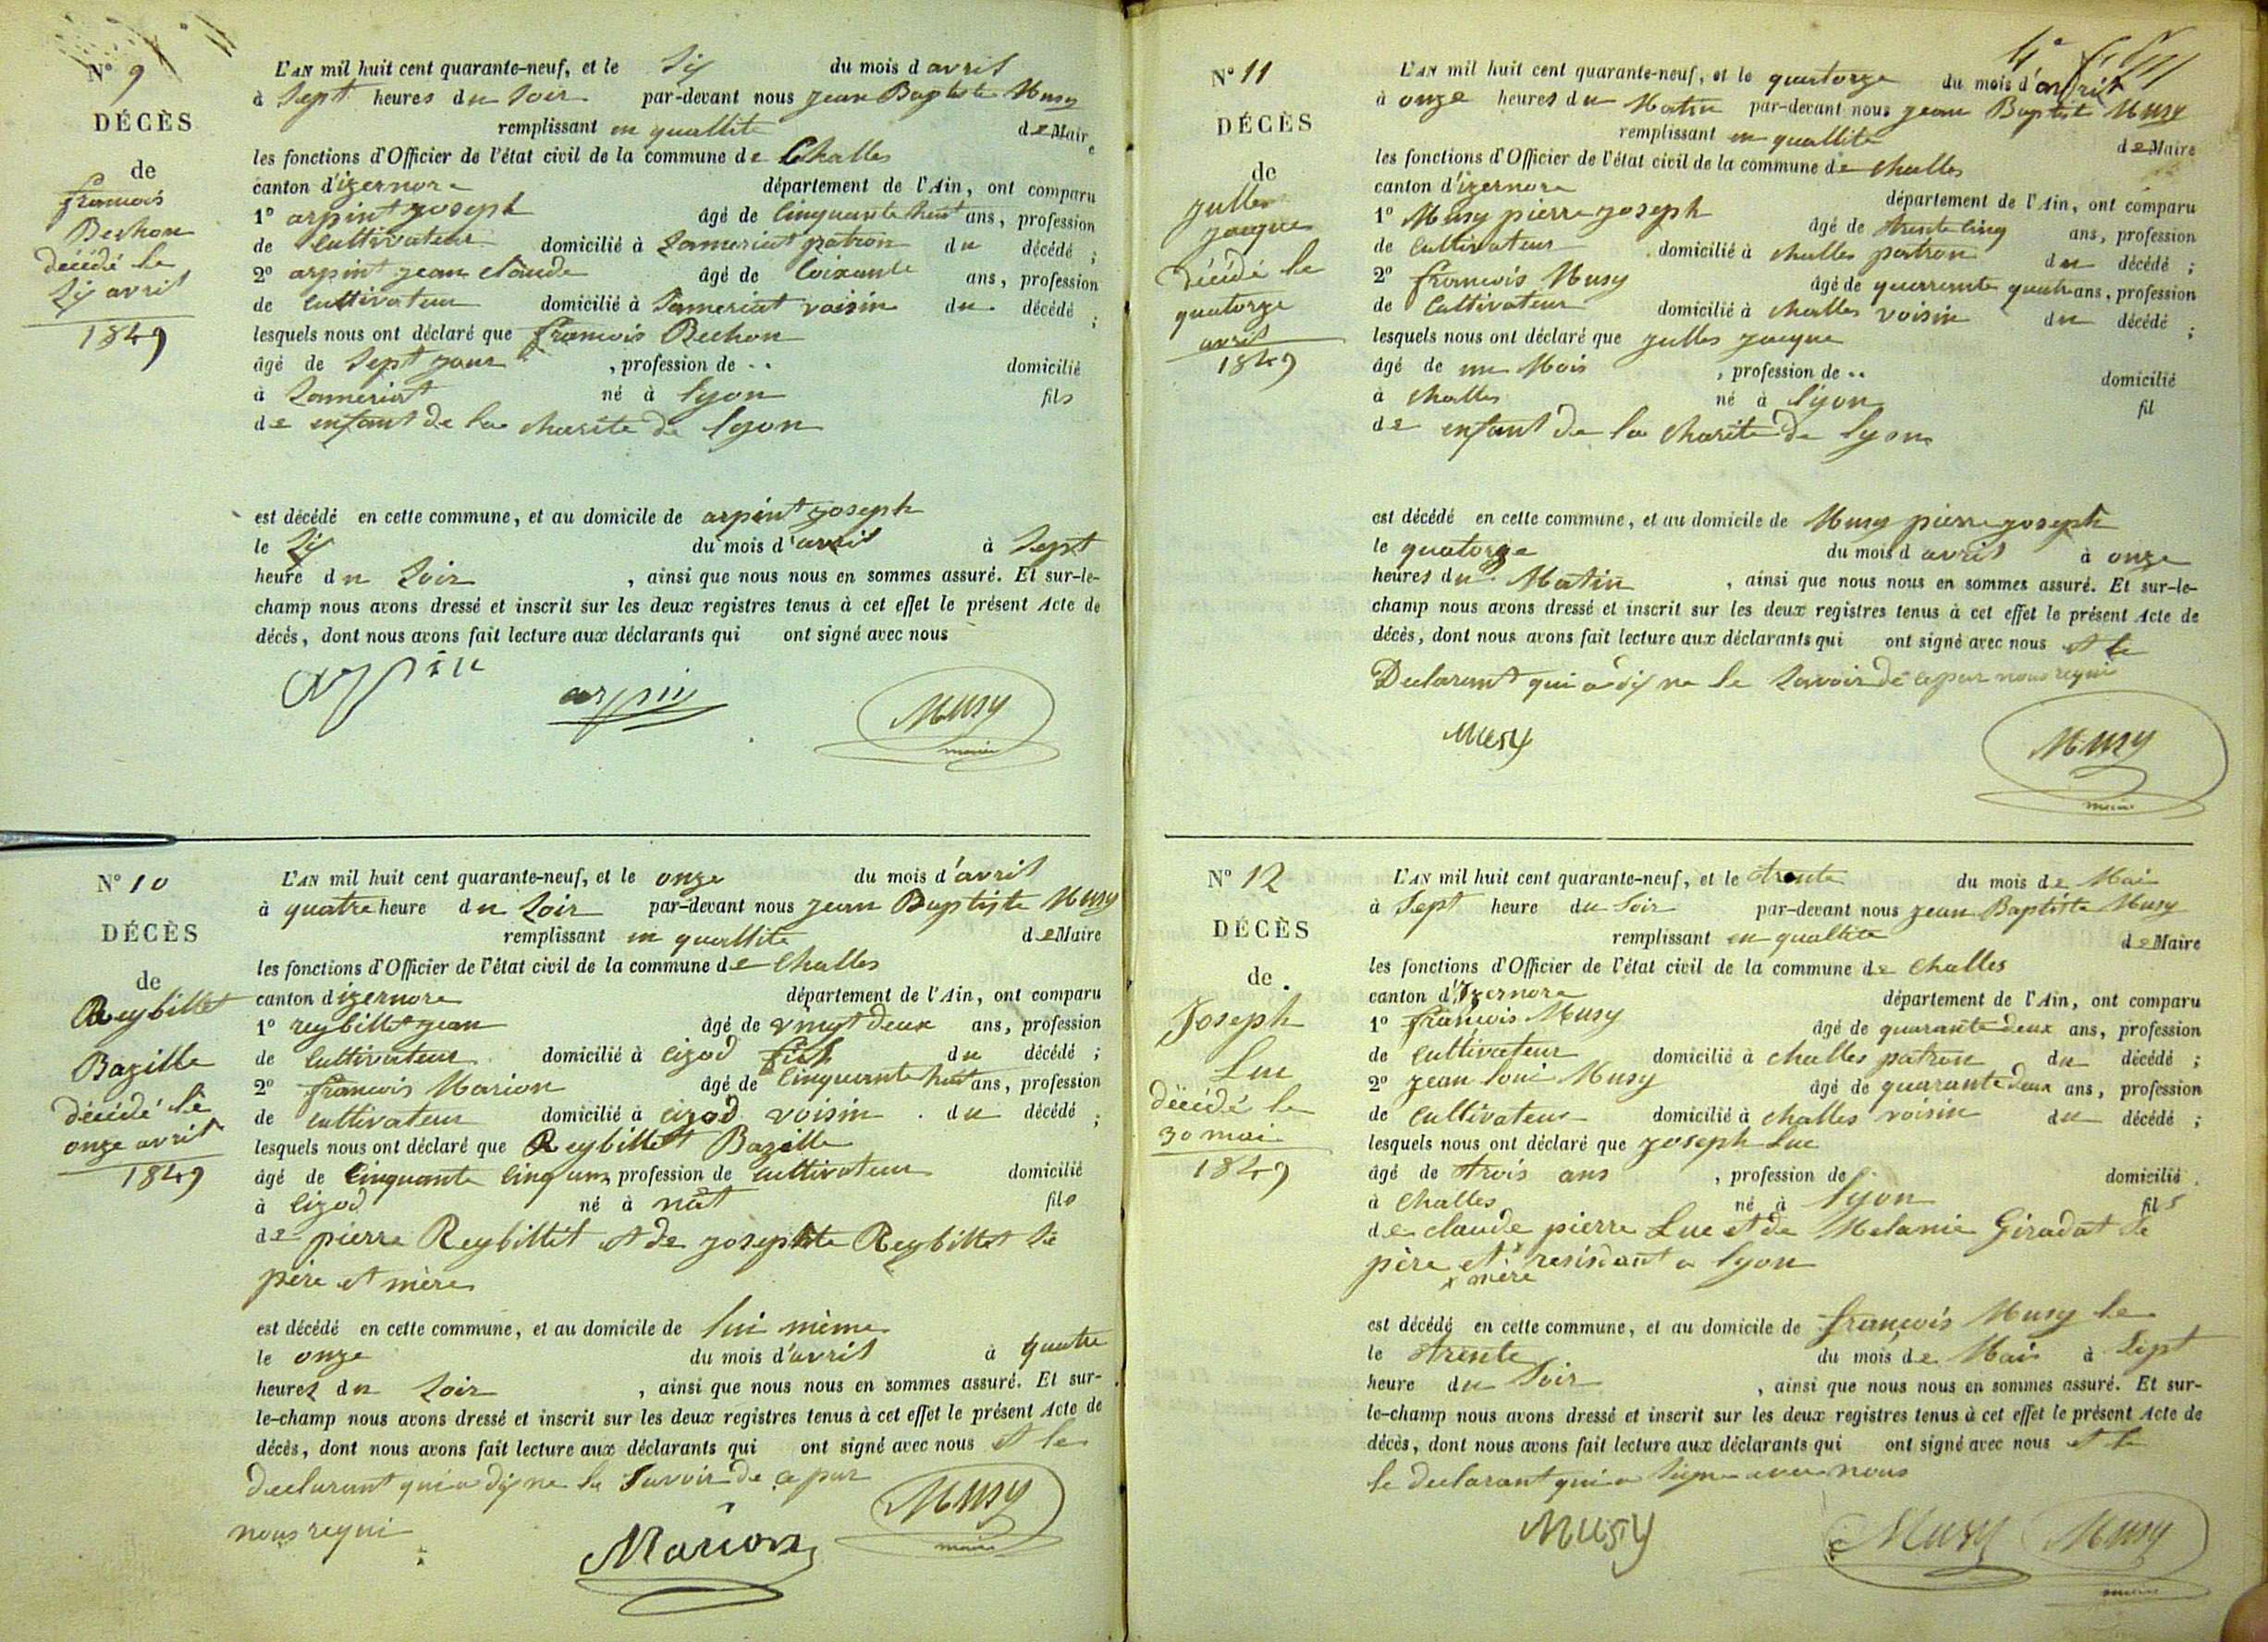 N° 9
DÉCÈS
de
francois
Bechon
décédé le
Sis avril
1849
L'AN mil huit cent quarante-neuf, et le Sis du mois d avril
à Sept heures du Soir par-devant nous jean Baptiste Musy
remplissant en quallite de Maire
les fonctions d'Officier de l'état civil de la commune de Challes
canton d'izernore département de l'Ain, ont comparu
1° arpint joseph âgé de Cinquante huit ans, profession
de Cultivateur domicilié à Sameriat patron du décédé ;
2° arpint jean claude âgé de Soixante ans, profession
de Cultivateur domicilié à Sameriat voisin du décédé ;
lesquels nous ont déclaré que francois Bechon
âgé de Sept jour , profession de .. domicilié
à Sameriat né à lyon fils
de enfant de la charite de lyon
est décédé en cette commune, et au domicile de arpint joseph
le Sis du mois d'avril à Sept
heure du Soir , ainsi que nous nous en sommes assuré. Et sur-le-
champ nous avons dressé et inscrit sur les deux registres tenus à cet effet le présent Acte de
décès, dont nous avons fait lecture aux déclarants qui ont signé avec nous
arpin Musy
maire
N° 10
DÉCÈS
de
Reybillet
Bazille
décédé le
onze avril
1849
L'AN mil huit cent quarante-neuf, et le onze du mois d'avril
à quatre heure du Soir par-devant nous jean Baptiste Musy
remplissant en quallite de Maire
les fonctions d'Officier de l'état civil de la commune de Challes
canton d izernore département de l'Ain, ont comparu
1° reybillet jean âgé de vingt deux ans, profession
de Cultivateur domicilié à cizod fils du décédé ;
2° francois Marion âgé de Cinquante huit ans, profession
de cultivateur domicilié à cizod voisin du décédé ;
lesquels nous ont déclaré que Reybillet Bazille
âgé de Cinquante Cinq ans, profession de cultivateur domicilié
à cizod né à nât fils
de pierre Reybillet et de josephte Reybillet Sé
père et mère
est décédé en cette commune, et au domicile de lui même
le onze du mois d'avril à quatre
heures du Soir , ainsi que nous nous en sommes assuré. Et sur-
le-champ nous avons dressé et inscrit sur les deux registres tenus à cet effet le présent Acte de
décès, dont nous avons fait lecture aux déclarants qui ont signé avec nous et le
declarant qui a dis ne le Savoir de ce par
nous requi
Marion Musy
maire
4e
N° 11
DÉCÈS
de
julles
jacque
décédé le
quatorze
avril
1849
L'AN mil huit cent quarante-neuf, et le quatorze du mois d'avril
à onze heures du Matin par-devant nous jean Baptiste Musy
remplissant en quallite de Maire
les fonctions d'Officier de l'état civil de la commune de challes
canton d'izernore département de l'Ain, ont comparu
1° Musy pierre joseph âgé de trente Cinq ans, profession
de Cultivateur domicilié à challes patron du décédé ;
2° francois Musy âgé de quarrante quatre ans, profession
de Cultivateur domicilié à challes voisin du décédé ;
lesquels nous ont déclaré que julles jacque
âgé de un Mois , profession de .. domicilié
à challes né à lyon fil
de enfant de la charite de lyon
est décédé en cette commune, et au domicile de Musy pierre joseph
le quatorze du mois d avril à onze
heures du Matin , ainsi que nous nous en sommes assuré. Et sur-le-
champ nous avons dressé et inscrit sur les deux registres tenus à cet effet le présent Acte de
décès, dont nous avons fait lecture aux déclarants qui ont signé avec nous et le
Declarant qui a dis ne le Savoir de ce par nous requi
Musy Musy
maire
N° 12
DÉCÈS
de
Joseph
Luc
décédé le
30 mai
1849
L'AN mil huit cent quarante-neuf, et le trente du mois de Mai
à Sept heure du Soir par-devant nous jean Baptiste Musy
remplissant en quallite de Maire
les fonctions d'Officier de l'état civil de la commune de challes
canton d'Izernore département de l'Ain, ont comparu
1° françois Musy âgé de quarante deux ans, profession
de cultivateur domicilié à challes patron du décédé ;
2° jean loui Musy âgé de quarante deux ans, profession
de cultivateur domicilié à challes voisin du décédé ;
lesquels nous ont déclaré que joseph Luc
âgé de trois ans , profession de domicilié
à Challes né à lyon fils
de claude pierre Luc et de Melanie Giradat Se
père et x residant a lyon
x mère
est décédé en cette commune, et au domicile de françois Musy le
le trente du mois de Mai à Sept
heure du Soir , ainsi que nous nous en sommes assuré. Et sur-
le-champ nous avons dressé et inscrit sur les deux registres tenus à cet effet le présent Acte de
décès, dont nous avons fait lecture aux déclarants qui ont signé avec nous et le
le declarant qui a Signe avec nous
Musy Musy Musy
maire